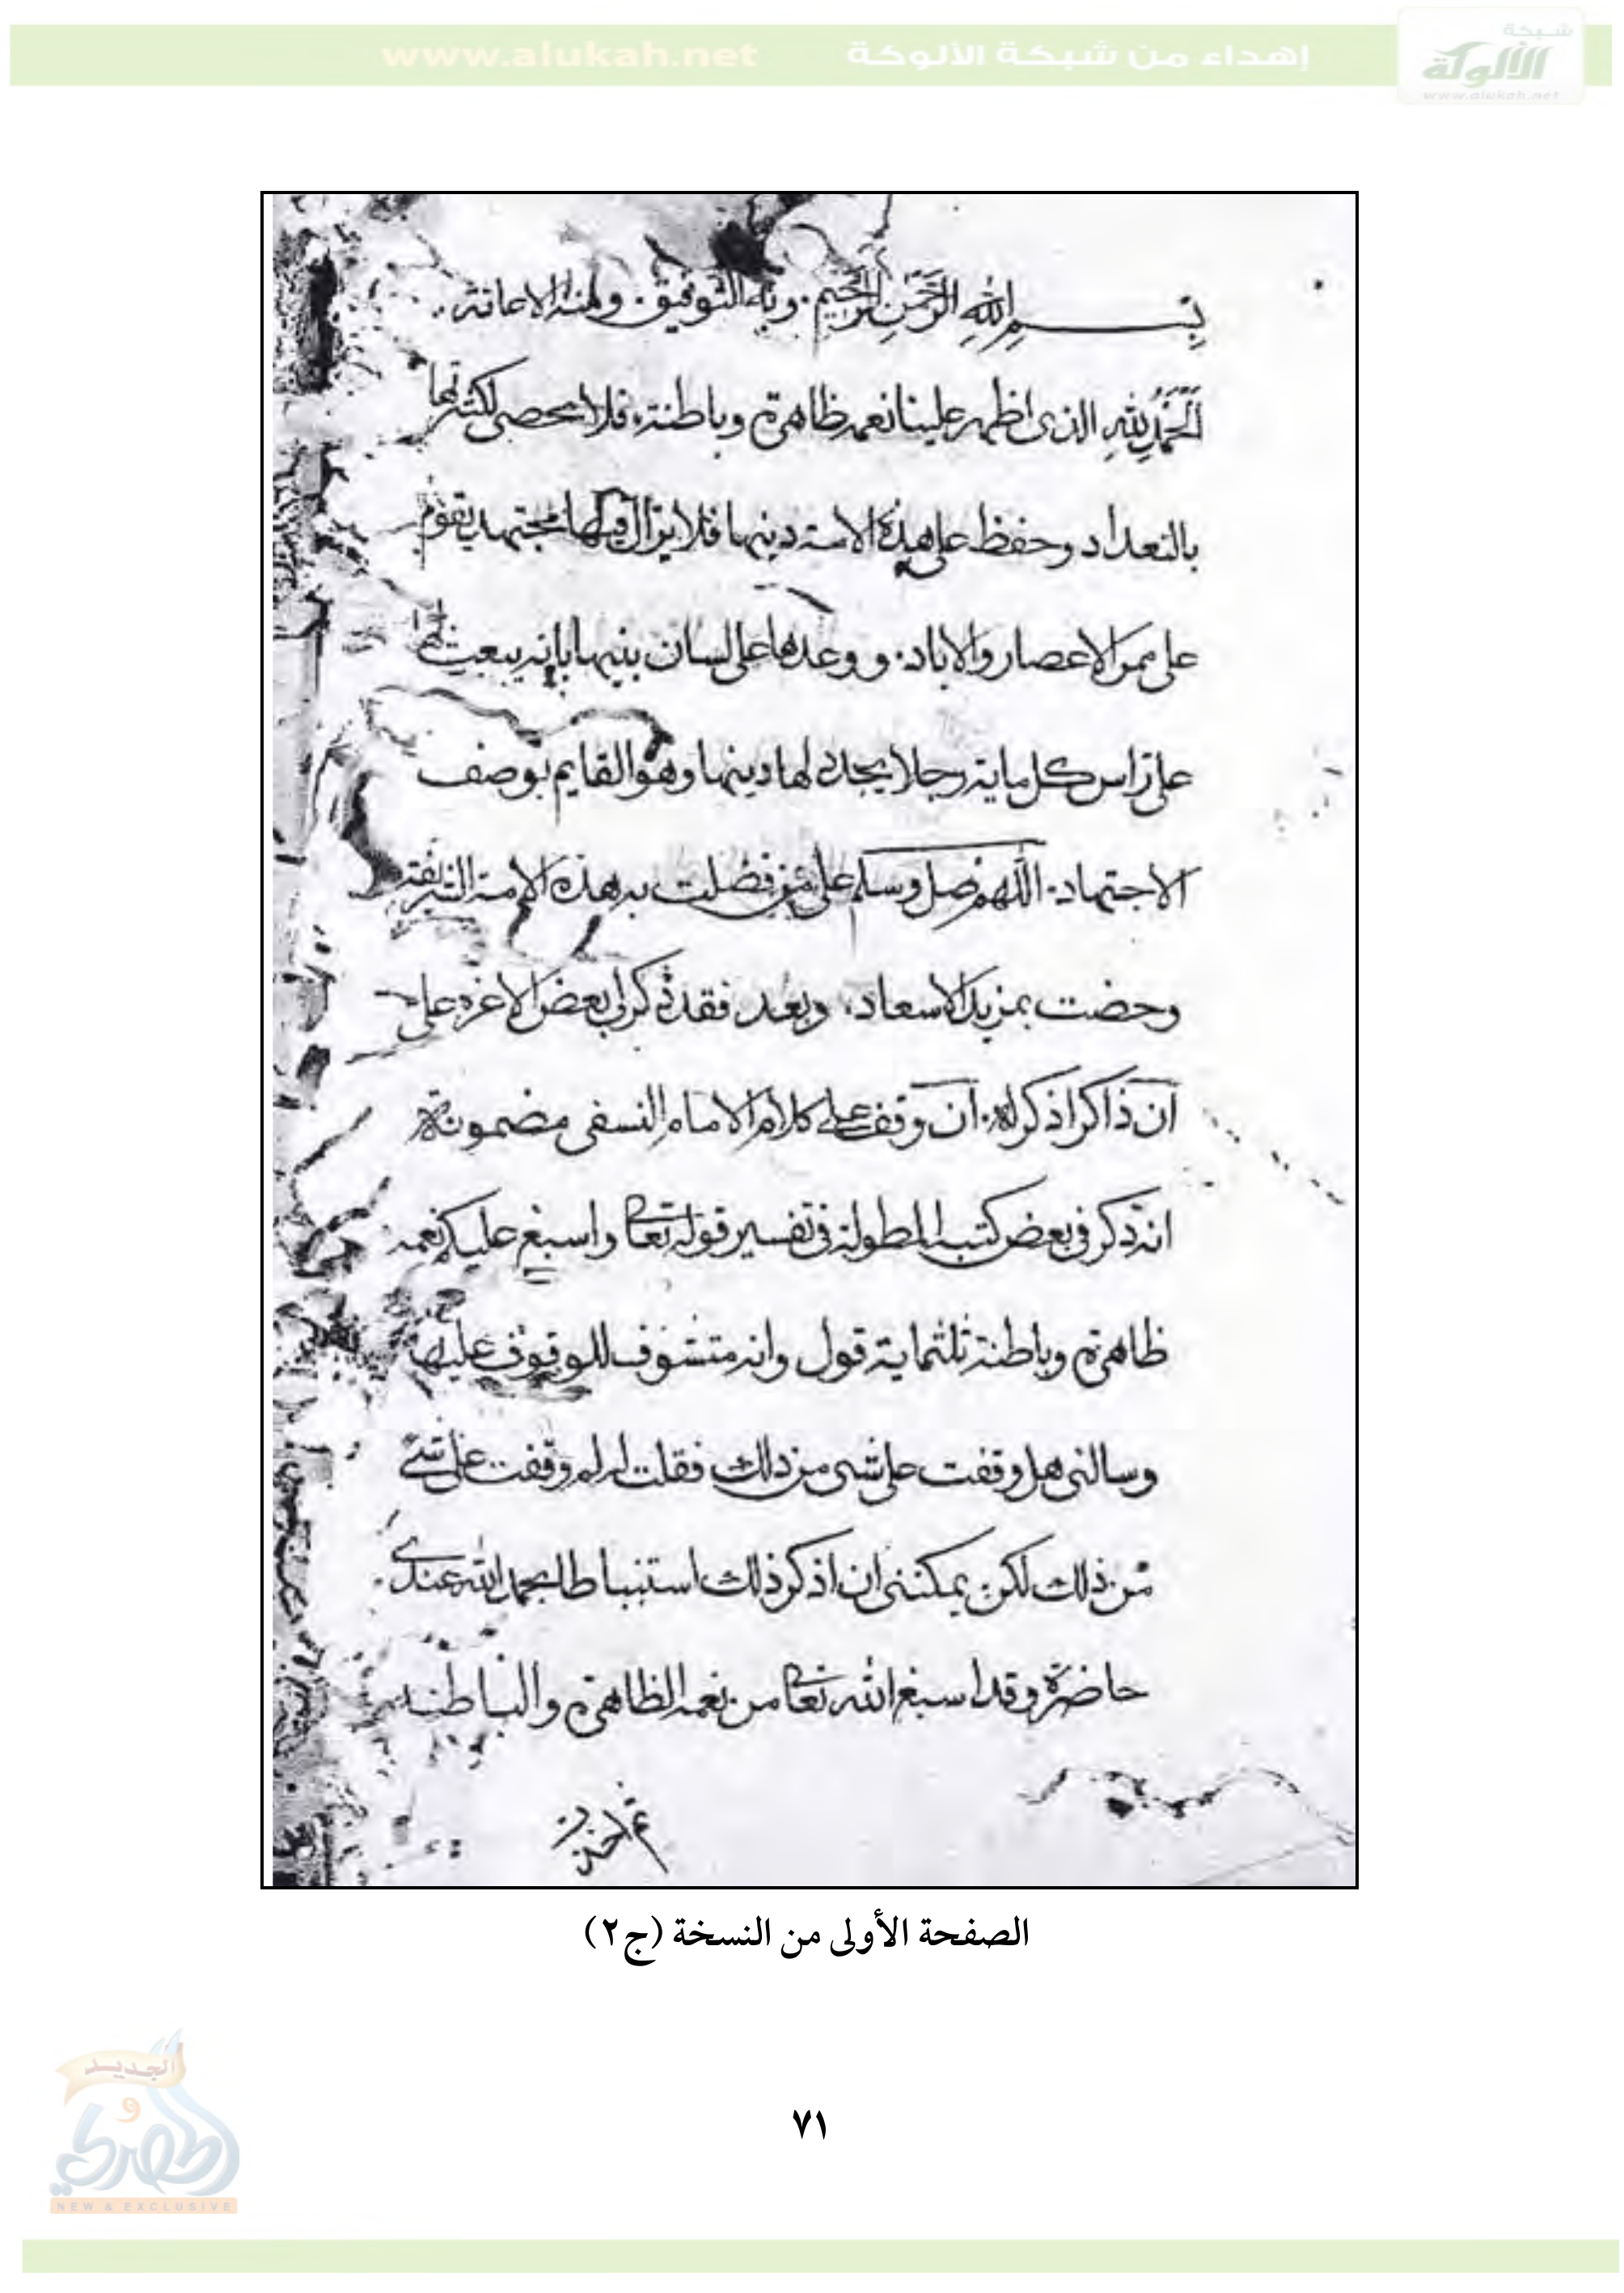 شبكة
الألوكة
www.alukah.net
إهداء من شبكة الألوكة www.alukah.net
بسم الله الرحمن الرحيم . وبه التوفيق . الاعانة .
الحمد لله الذي اظهر علينا نعمه ظاهرة وباطنة . فلا تحصى لكثرتها
بالتعداد وحفظ على هذه الامة دينها فلا يزال فيها مجتهد يقوم
على ممر الاعصار والاباد . ووعدها على لسان بنيها بانه يبعث لها
على راس كل ماية رجلا يجدد لها دينها وهو القايم بوصف
الاجتهاد . اللهم صل وسلم على من فضلت به هذه الامة الشريفة
وحضت بمزيد الاسعاد . وبعد فقد ذكر لى بعض الاعزه على
ان ذاكرا ذكر له . ان وقف على كلام الامام النسفى مضمونة
انه ذكر فى بعض كتبه المطولة فى تفسير قوله تعالى واسبغ عليكم نعمه
ظاهرة وباطنة ثلثماية قول وانه متشوف للوقوف عليها
وسالنى هل وقفت على شى من ذلك فقلت له لم وقفت على شى
من ذلك لكن يمكننى ان اذكر ذلك استنباطا بحمد الله عندى .
حاضرة وقد اسبغ الله تعالى من نعمه الظاهرة والباطنه
الصفحة الأولى من النسخة (ج٢)
الجديد
و
الحصري
NEW & EXCLUSIVE
٧١